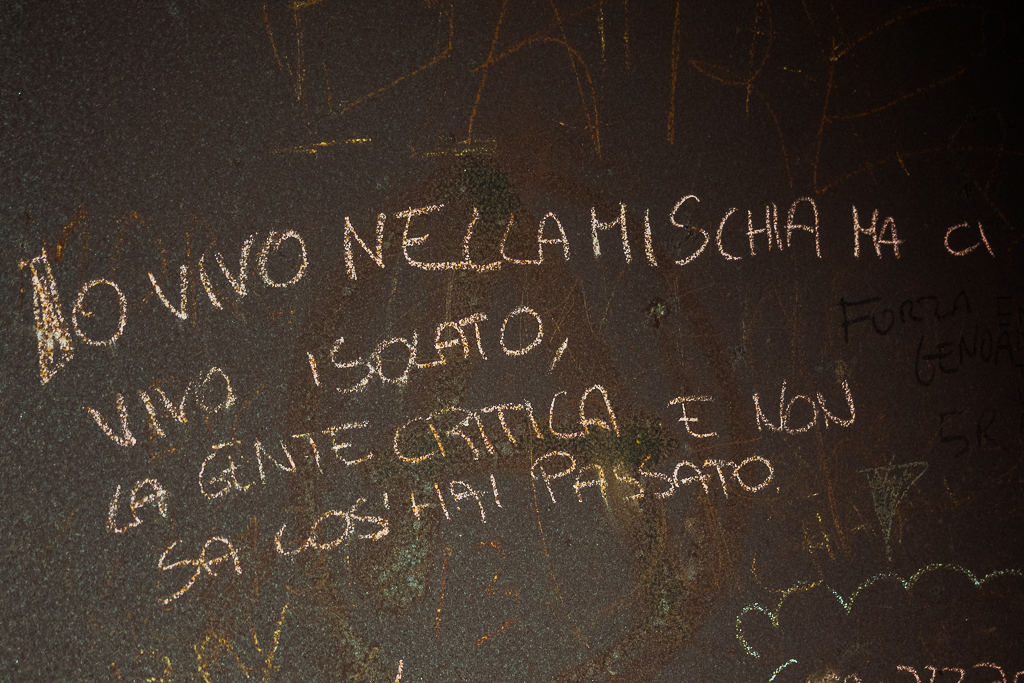 NO VIVO NELLA MISCHIA MA CI
VIVO ISOLATO,
LA GENTE CRITICA E NON
SA COS' HAI PASSATO
FORZA
GENOA